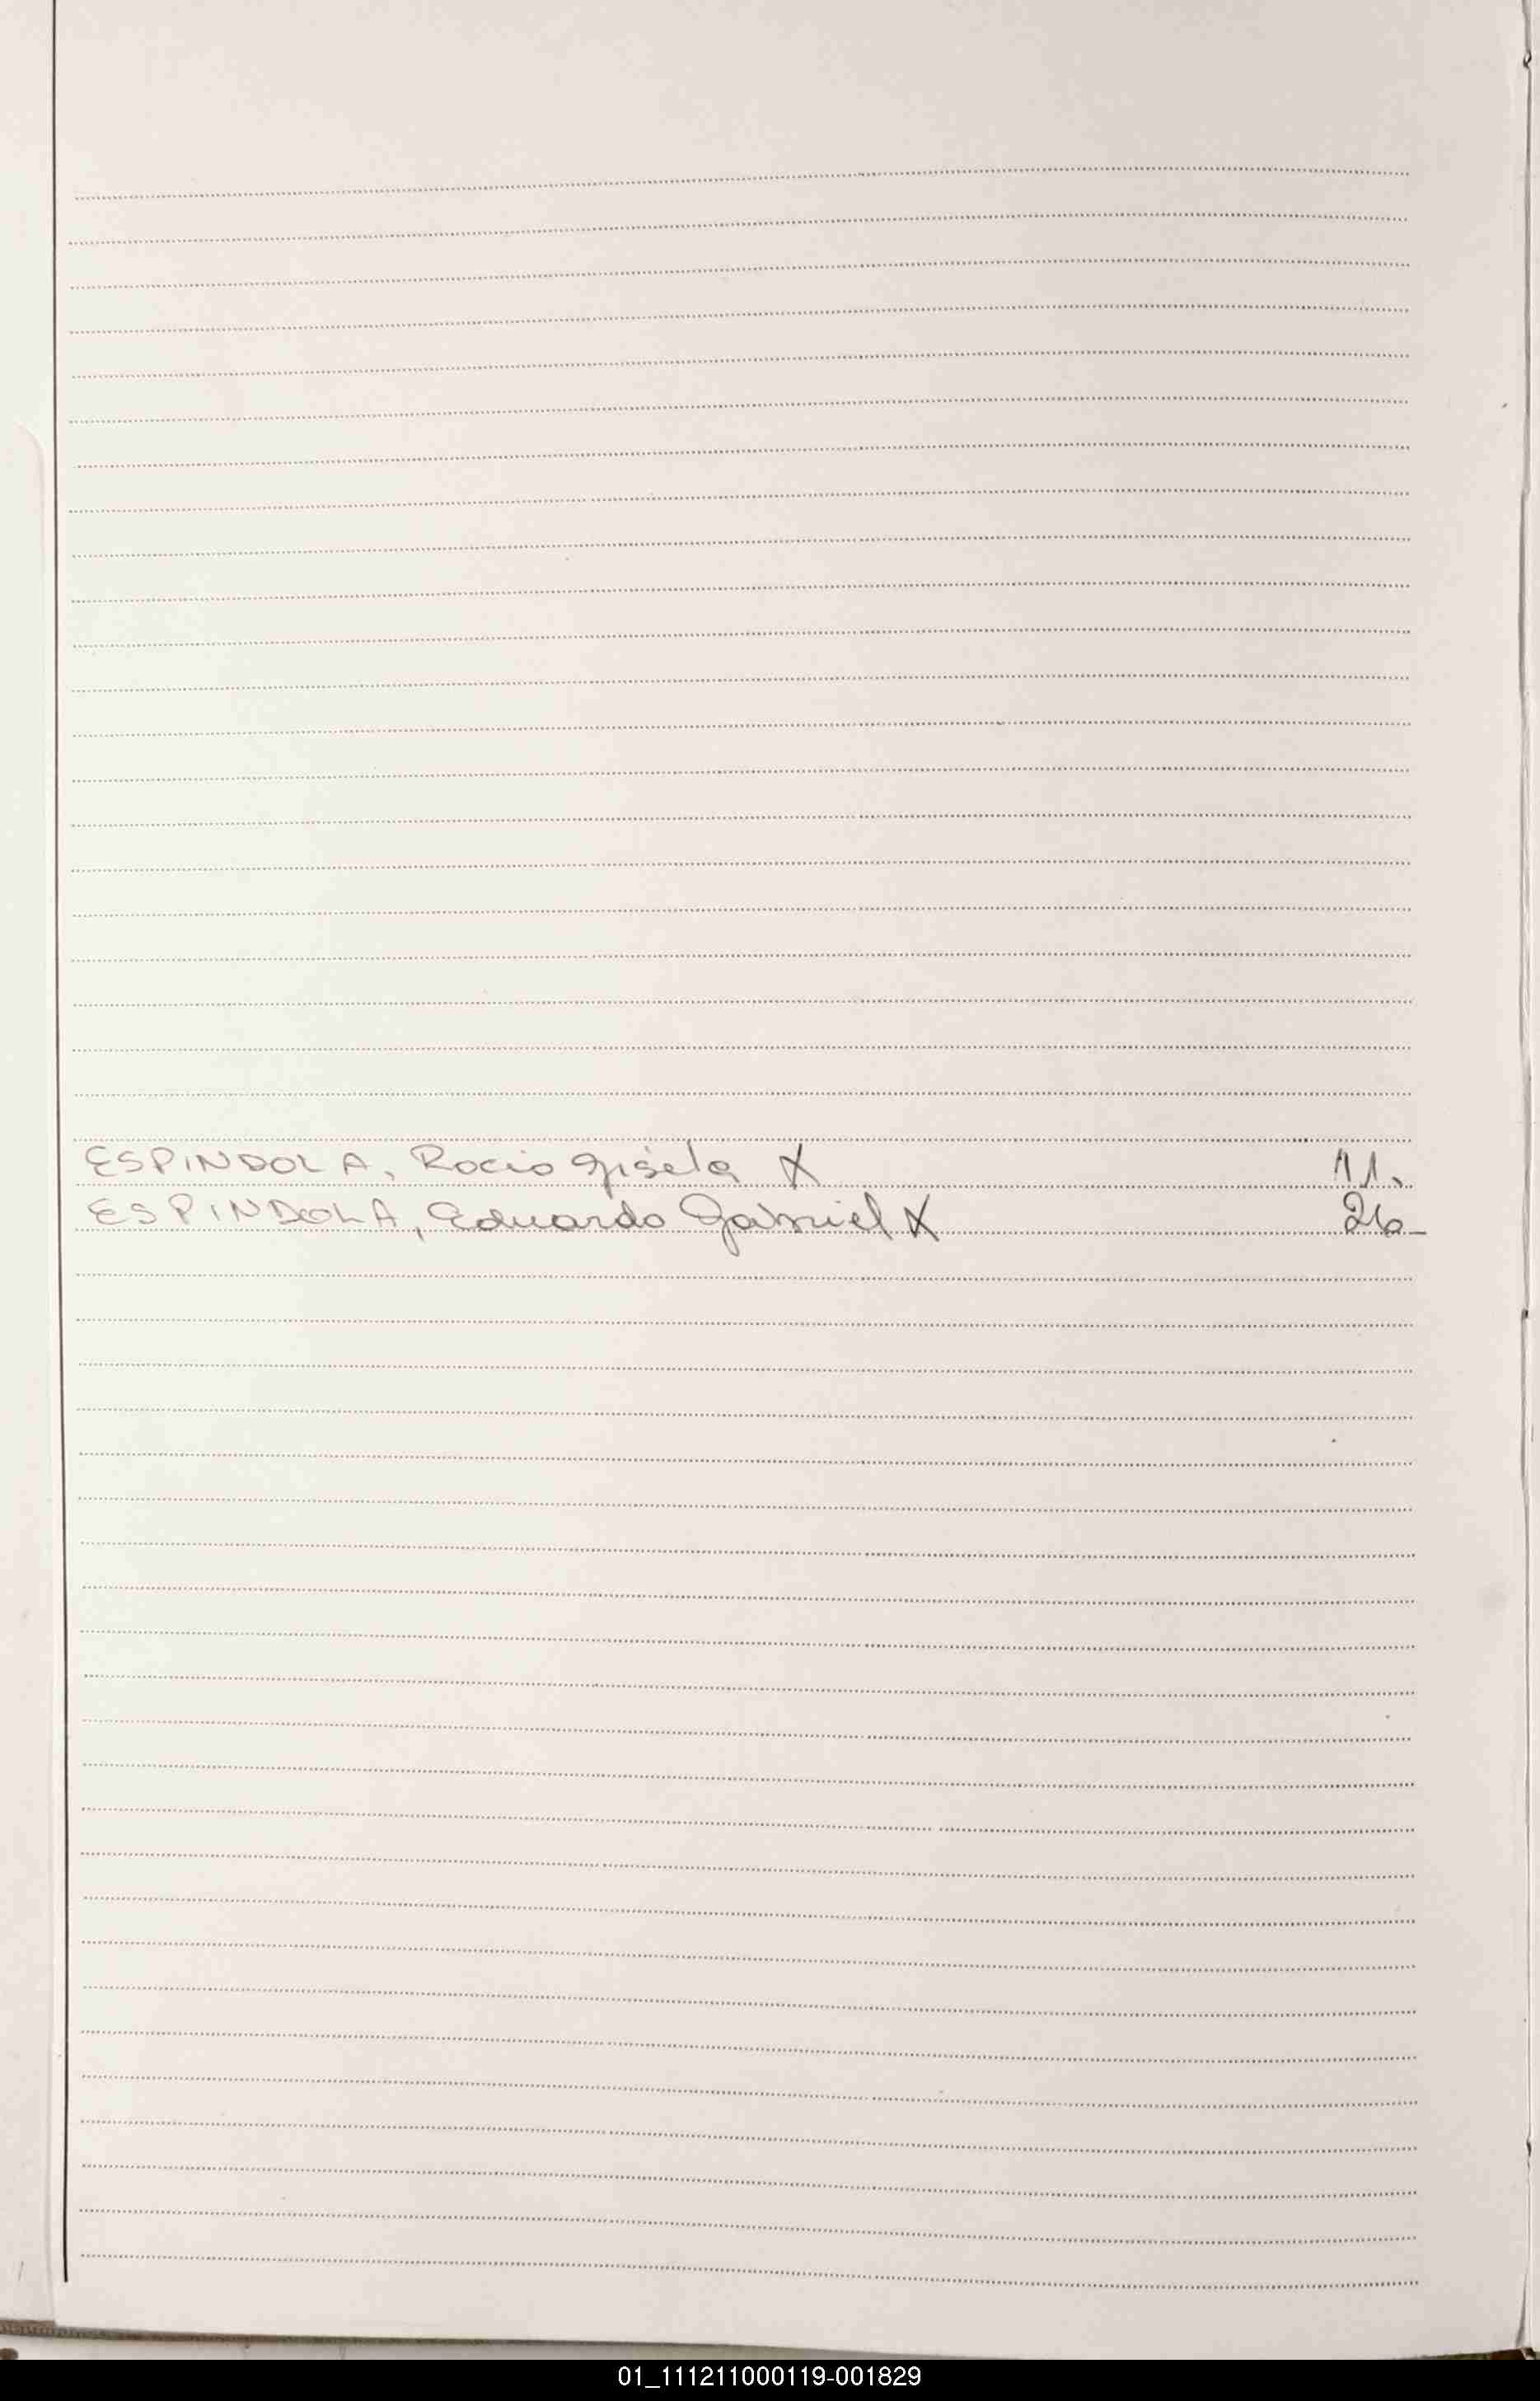 ESPINDOLA, Rocio Gisela X 11.
ESPINDOLA, Eduardo Gabriel X 26_
01_111211000119-001829